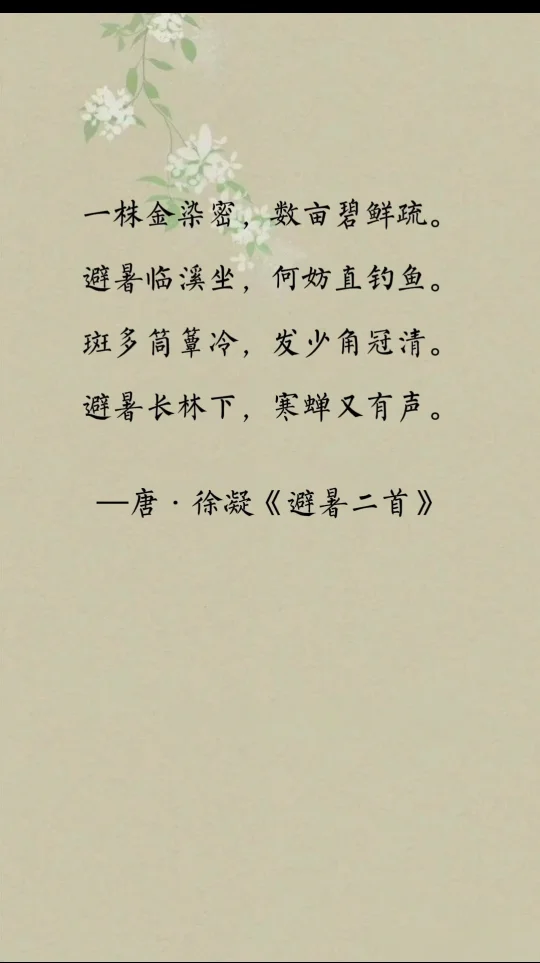 一株金染密，数亩碧鲜疏。
避暑临溪坐，何妨直钓鱼。
斑多筒簟冷，发少角冠清。
避暑长林下，寒蝉又有声。
—唐·徐凝《避暑二首》